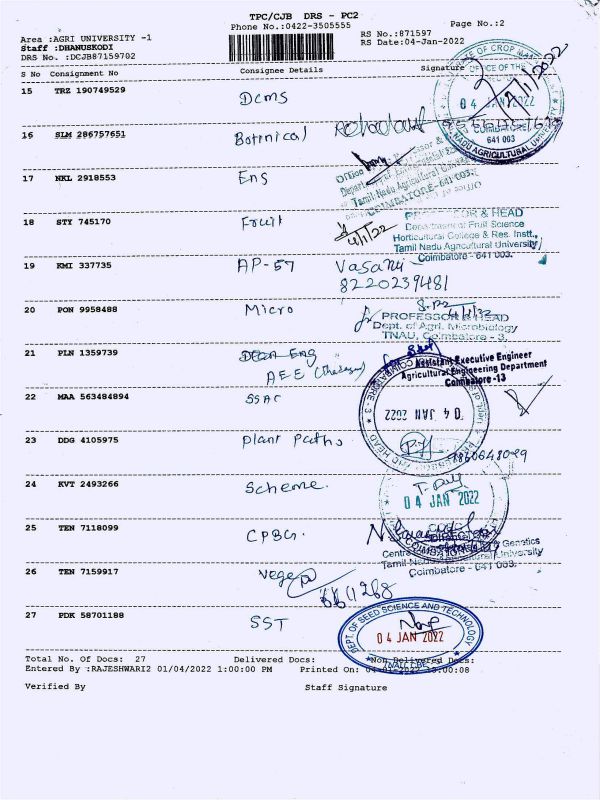 TPC/CJB DRS - PC2
Phone No.:0422-3505555
Page No.:2
Area :AGRI UNIVERSITY -1
RS No.:871597
Staff :DHANUSKODI
RS Date:04-Jan-2022
DRS No. :DCJB87159702
S No Consignment No Consignee Details Signature
15 TRZ 190749529 Dcms
OFFICE OF THE
04 JAN 2022
COIMBATORE
641 003
TAMIL NADU AGRICULTURAL UNIVERSITY
16 SLM 286757651 Botanical
17 NKL 2918553 Eng
Tamil Nadu Agricultural
COIMBATORE-641 003.
18 STY 745170 Fruit 4/1/22
PROFESSOR & HEAD
Department of Fruit Science
Horticultural College & Res. Instt.,
Tamil Nadu Agricultural University
Coimbatore - 641 003.
19 KMI 337735 AP-57 Vasani
8220239481
20 PON 9958488 Micro 4/1/22
PROFESSOR & HEAD
Dept. of Agrl. Microbiology
TNAU, Coimbatore - 3.
21 PLN 1359739 Eng
AEE
Assistant Executive Engineer
Agricultural Engineering Department
Coimbatore -13
22 MAA 563484894 SSAC
04 JAN 2022
23 DDG 4105975 Plant Patho
24 KVT 2493266 Scheme.
04 JAN 2022
25 TEN 7118099 CPBG.
Genetics
Tamil Nadu Agricultural University
Coimbatore - 641 003.
26 TEN 7159917 Vege
6611268
27 PDK 58701188 SST
DEPT. OF SEED SCIENCE AND TECHNOLOGY
04 JAN 2022
TNAU, CBE
Total No. Of Docs: 27 Delivered Docs: Non Delivered Docs:
Entered By :RAJESHWARI2 01/04/2022 1:00:00 PM Printed On: 04-01-2022 13:00:08
Verified By Staff Signature